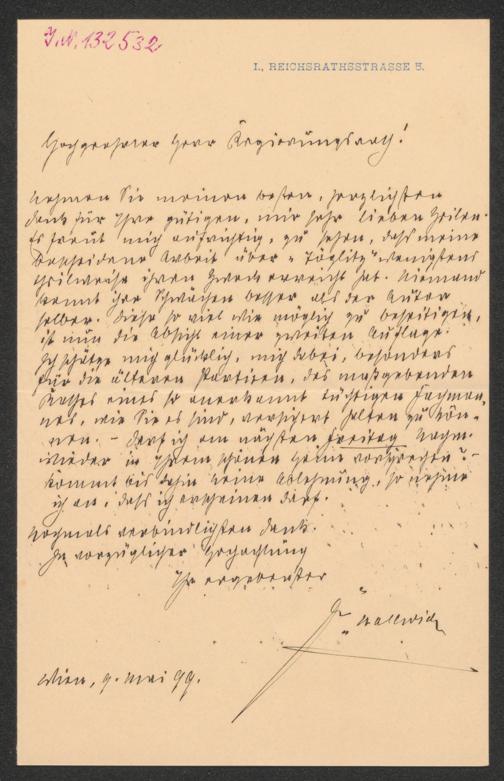 J.N. 132532
I., REICHSRATHSSTRASSE 5.
Hochgeehrter Herr Regierungsrath!
Nehmen Sie meinen besten, herzlichsten
Dank für Ihre gütigen, mir sehr lieben Zeilen.
Es freut mich aufrichtig, zu sehen, dass meine
bescheidene Arbeit über „Töplitz" wenigstens
theilweise ihren Zweck erreicht hat. Niemand
kennt ihre Schwächen besser als der Autor
selber. Diese so viel wie möglich zu beseitigen,
ist nun die Absicht einer zweiten Auflage.
Ich schätze mich glücklich, mich dabei, besonders
für die älteren Partieen, des maßgebenden
Rathes eines so anerkannt tüchtigen Fachman-
nes, wie Sie es sind, versichert halten zu kön-
nen. – Darf ich am nächsten Freitag Nachm.
wieder in Ihrem schönen Heime vorsprechen? –
Kommt bis dahin keine Ablehnung, so nehme
ich an, dass ich erscheinen darf.
Nochmals verbindlichsten Dank.
In vorzüglicher Hochachtung
Ihr ergebenster
Dr Hallwich
Wien, 9. Mai 99.